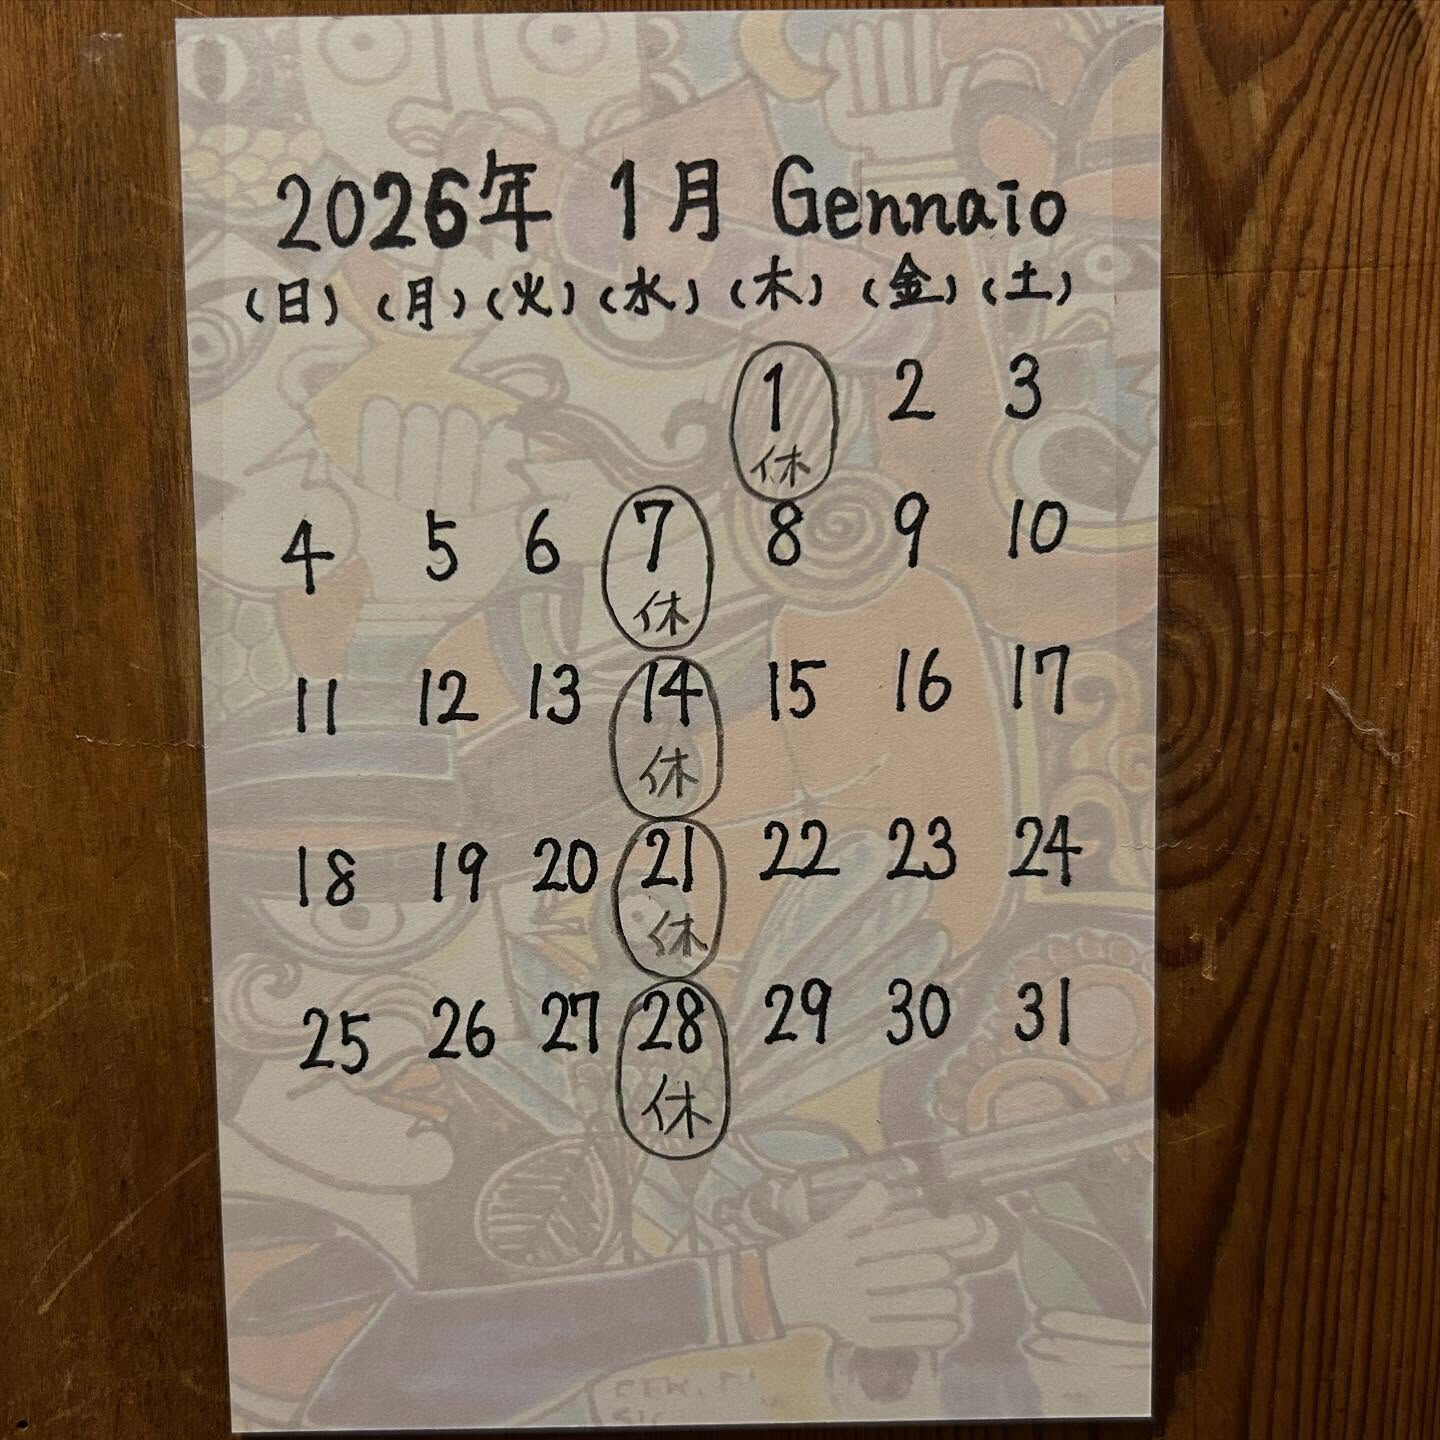 2026年 1月 Gennaio
(日) (月) (火) (水) (木) (金) (土)
1 2 3
休
4 5 6 7 8 9 10
休
11 12 13 14 15 16 17
休
18 19 20 21 22 23 24
休
25 26 27 28 29 30 31
休